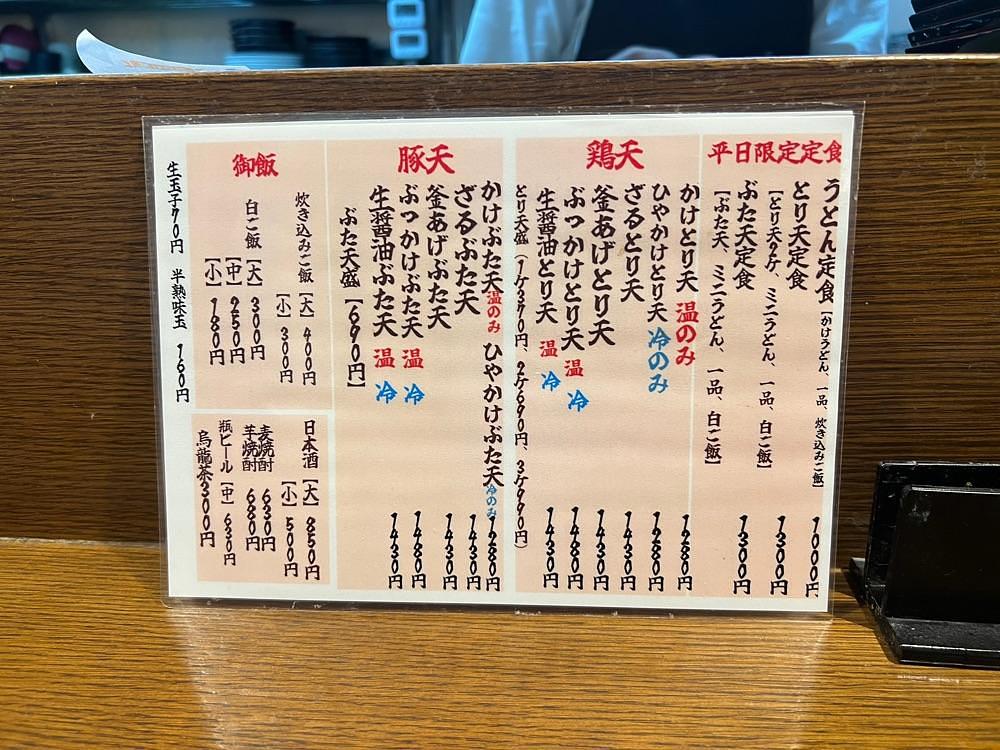 平日限定定食
うどん定食 [かけうどん、一品、炊き込みご飯] 1000円
とり天定食 1300円
[とり天2ケ、ミニうどん、一品、白ご飯]
ぶた天定食 1300円
[ぶた天、ミニうどん、一品、白ご飯]
鶏天
かけとり天 温のみ 1280円
ひやかけとり天 冷のみ 1280円
ざるとり天 1430円
釜あげとり天 1430円
ぶっかけとり天 温 冷 1480円
生醤油とり天 温 冷 1430円
とり天盛 (1ケ370円、2ケ690円、3ケ990円)
豚天
かけぶた天 温のみ ひやかけぶた天 冷のみ 1280円
ざるぶた天 1430円
釜あげぶた天 1430円
ぶっかけぶた天 温 冷 1480円
生醤油ぶた天 温 冷 1430円
ぶた天盛 [690円]
御飯
炊き込みご飯 [大] 400円
[小] 300円
白ご飯 [大] 300円
[中] 250円
[小] 180円
日本酒 [大] 850円
[小] 500円
麦焼酎 630円
芋焼酎 680円
瓶ビール [中] 630円
烏龍茶 300円
生玉子70円 半熟味玉 160円